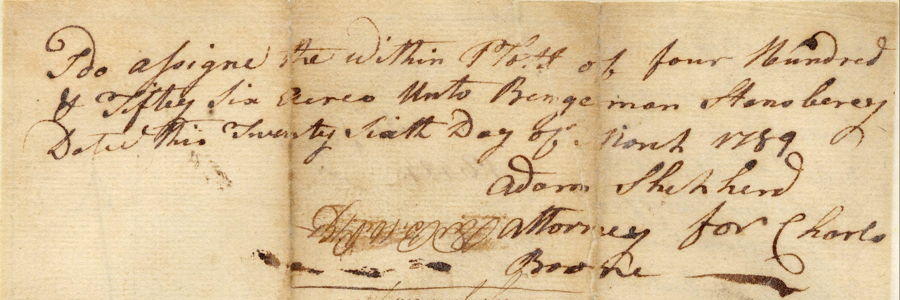 I do assigne the Within Plott of four Hundred
& Fiftey Six Acres Unto Bengeman Stansberey
Dated this Twenty Sixth Day of March 1789
Adam Shepherd
attorney for Charls
Boone